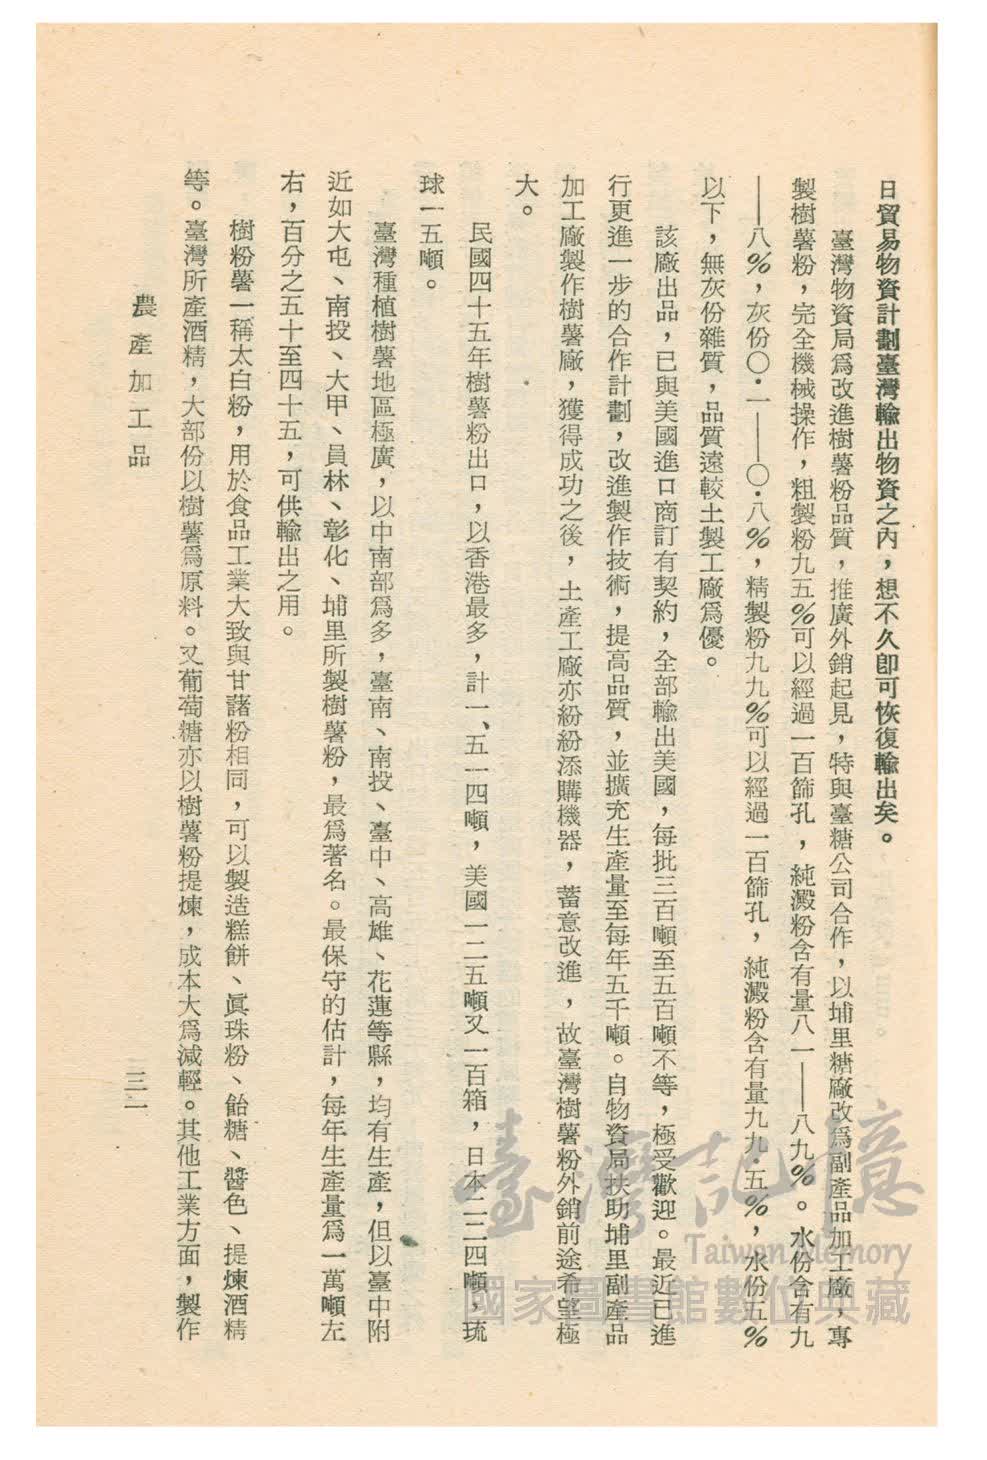 日貿易物資計劃臺灣輸出物資之內，想不久卽可恢復輸出矣。
臺灣物資局爲改進樹薯粉品質，推廣外銷起見，特與臺糖公司合作，以埔里糖廠改爲副產品加工廠，專
製樹薯粉，完全機械操作，粗製粉九五％可以經過一百篩孔，純澱粉含有量八一——八九％。水份含有九
——八％，灰份〇・一——〇・八％，精製粉九九％可以經過一百篩孔，純澱粉含有量九九・五％，水份五％
以下，無灰份雜質，品質遠較土製工廠爲優。
該廠出品，已與美國進口商訂有契約，全部輸出美國，每批三百噸至五百噸不等，極受歡迎。最近已進
行更進一步的合作計劃，改進製作技術，提高品質，並擴充生產量至每年五千噸。自物資局扶助埔里副產品
加工廠製作樹薯廠，獲得成功之後，土產工廠亦紛紛添購機器，蓄意改進，故臺灣樹薯粉外銷前途希望極
大。
民國四十五年樹薯粉出口，以香港最多，計一、五一四噸，美國一二五噸又一百箱，日本二二四噸，琉
球一五噸。
臺灣種植樹薯地區極廣，以中南部爲多，臺南、南投、臺中、高雄、花蓮等縣，均有生產，但以臺中附
近如大屯、南投、大甲、員林、彰化、埔里所製樹薯粉，最爲著名。最保守的估計，每年生產量爲一萬噸左
右，百分之五十至四十五，可供輸出之用。
樹粉薯一稱太白粉，用於食品工業大致與甘藷粉相同，可以製造糕餅、眞珠粉、飴糖、醬色、提煉酒精
等。臺灣所產酒精，大部份以樹薯爲原料。又葡萄糖亦以樹薯粉提煉，成本大爲減輕。其他工業方面，製作
農產加工品
三一
臺灣記憶
Taiwan Memory
國家圖書館數位典藏